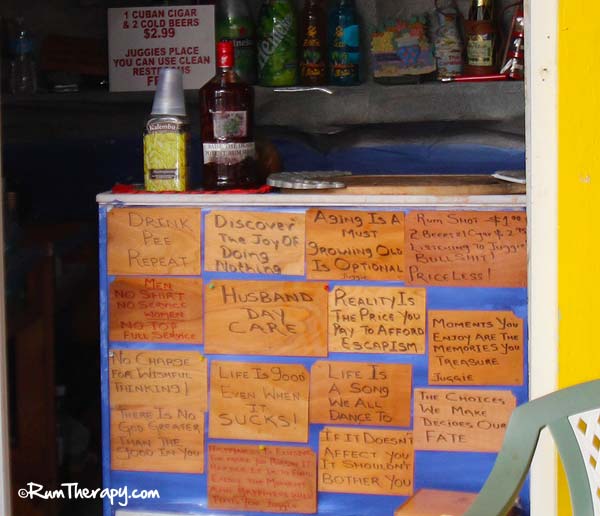 1 CUBAN CIGAR
& 2 COLD BEERS
$2.99
JUGGIES PLACE
YOU CAN USE CLEAN
Kalembu
DRINK
PEE
REPEAT
DISCOVER
THE JOY OF
DOING
NOTHING
AGING IS A
MUST
GROWING OLD
IS OPTIONAL
JUGGIE
RUM SHOT -
LISTENING TO JUGGIE
BULLSHIT!
PRICELESS!
MEN
NO SHIRT
NO SERVICE
WOMEN
NO TOP
FULL SERVICE
HUSBAND
DAY
CARE
REALITY IS
THE PRICE YOU
PAY TO AFFORD
ESCAPISM
MOMENTS YOU
ENJOY ARE THE
MEMORIES YOU
TREASURE
JUGGIE
NO CHARGE
FOR WISHFUL
THINKING!
LIFE IS GOOD
EVEN WHEN
IT
SUCKS!
LIFE IS
A SONG
WE ALL
DANCE TO
THE CHOICES
WE MAKE
DECIDES OUR
FATE
THERE IS NO
GOD GREATER
THAN THE
GOOD IN YOU
IF IT DOESN'T
AFFECT YOU
IT SHOULDN'T
BOTHER YOU
©RumTherapy.com